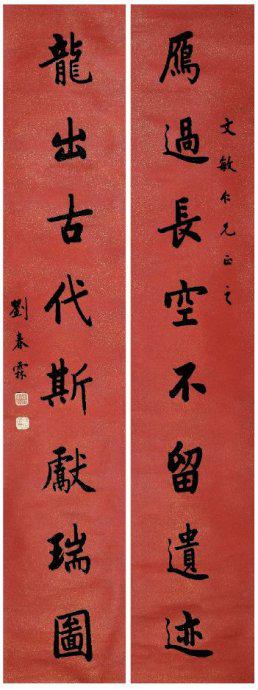 雁過長空不留遺迹
文敏仁兄正之
龍出古代斯獻瑞圖
劉春霖